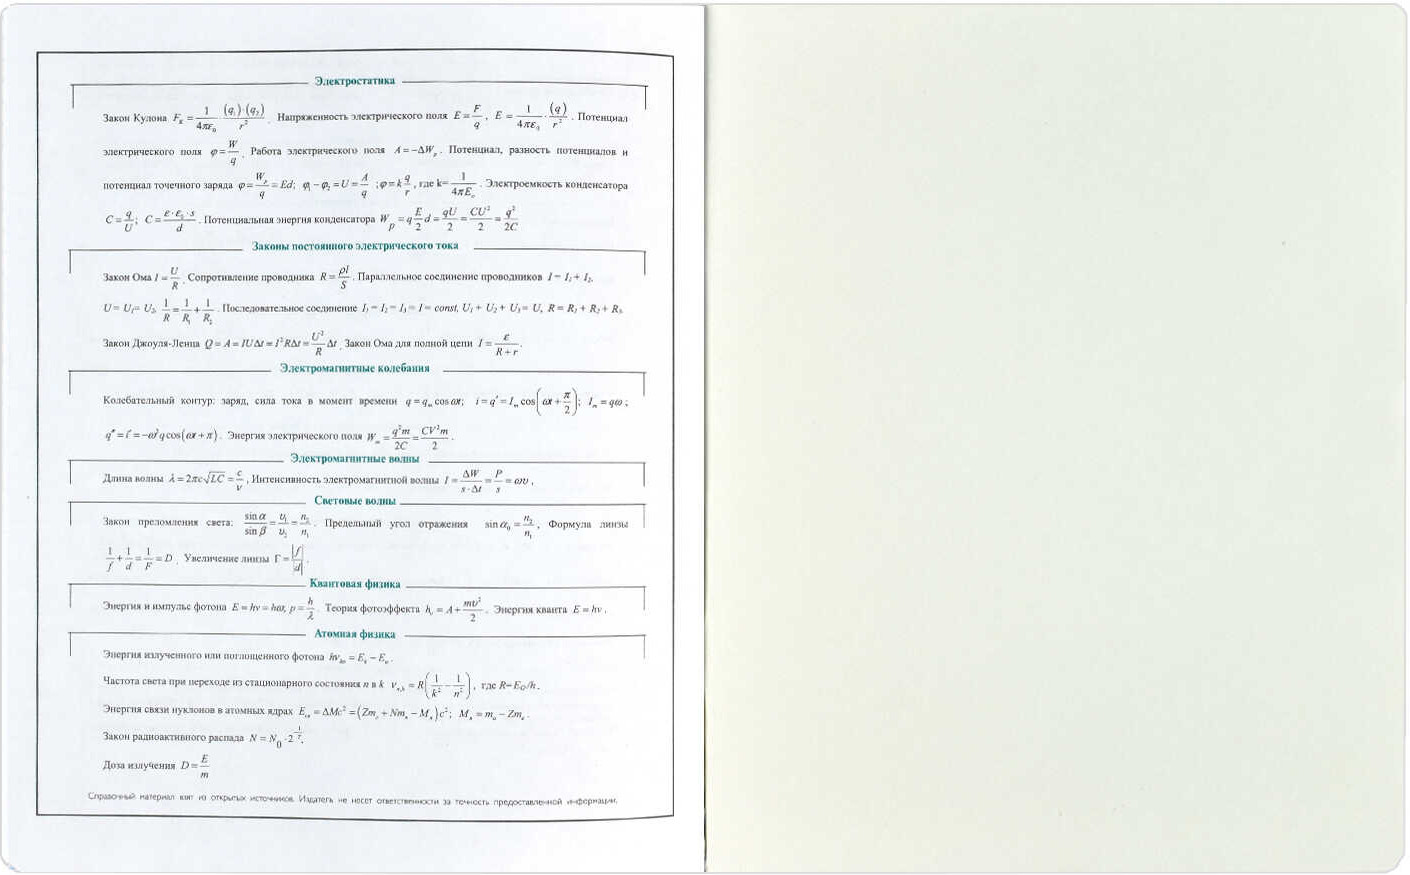 Электростатика
Закон Кулона F_K = 1/(4πε₀) · (q₁)·(q₂)/r². Напряженность электрического поля E = F/q, E = 1/(4πε₀) · (q)/r². Потенциал
электрического поля φ = W/q. Работа электрического поля A = −ΔW_p. Потенциал, разность потенциалов и
потенциал точечного заряда φ = W_p/q = Ed; φ₁ − φ₂ = U = A/q; φ = k q/r, где k= 1/(4πE_o). Электроемкость конденсатора
C = q/U; C = ε·ε₀·s/d. Потенциальная энергия конденсатора W_p = q E/2 d = qU/2 = CU²/2 = q²/2C
Законы постоянного электрического тока
Закон Ома I = U/R. Сопротивление проводника R = ρl/S. Параллельное соединение проводников I = I₁ + I₂,
U = U₁= U₂, 1/R = 1/R₁ + 1/R₂. Последовательное соединение I₁ = I₂ = I₃ = I = const, U₁ + U₂ + U₃ = U, R = R₁ + R₂ + R₃.
Закон Джоуля-Ленца Q = A = IUΔt = I²RΔt = U²/R Δt. Закон Ома для полной цепи I = ε/(R + r).
Электромагнитные колебания
Колебательный контур: заряд, сила тока в момент времени q = q_m cos ωt; i = q' = I_m cos(ωt + π/2); I_m = qω;
q" = i' = −ω²q cos(ωt + π). Энергия электрического поля W_m = q²m/2C = CV²m/2.
Электромагнитные волны
Длина волны λ = 2πc√LC = c/ν, Интенсивность электромагнитной волны I = ΔW/(s·Δt) = P/s = ωυ,
Световые волны
Закон преломления света: sin α/sin β = υ₁/υ₂ = n₂/n₁. Предельный угол отражения sin α₀ = n₂/n₁, Формула линзы
1/f + 1/d = 1/F = D. Увеличение линзы Γ = |f/d|.
Квантовая физика
Энергия и импульс фотона E = hν = hω, p = h/λ. Теория фотоэффекта h_ν = A + mυ²/2. Энергия кванта E = hν.
Атомная физика
Энергия излученного или поглощенного фотона hν_kn = E_k − E_n.
Частота света при переходе из стационарного состояния n в k ν_n,k = R(1/k² − 1/n²), где R=E₀/h.
Энергия связи нуклонов в атомных ядрах E_св = ΔMc² = (Zm_p + Nm_n − M_я)c²; M_я = m_a − Zm_e.
Закон радиоактивного распада N = N₀ · 2
Доза излучения D = E/m
Справочный материал взят из открытых источников. Издатель не несет ответственности за точность предоставленной информации.